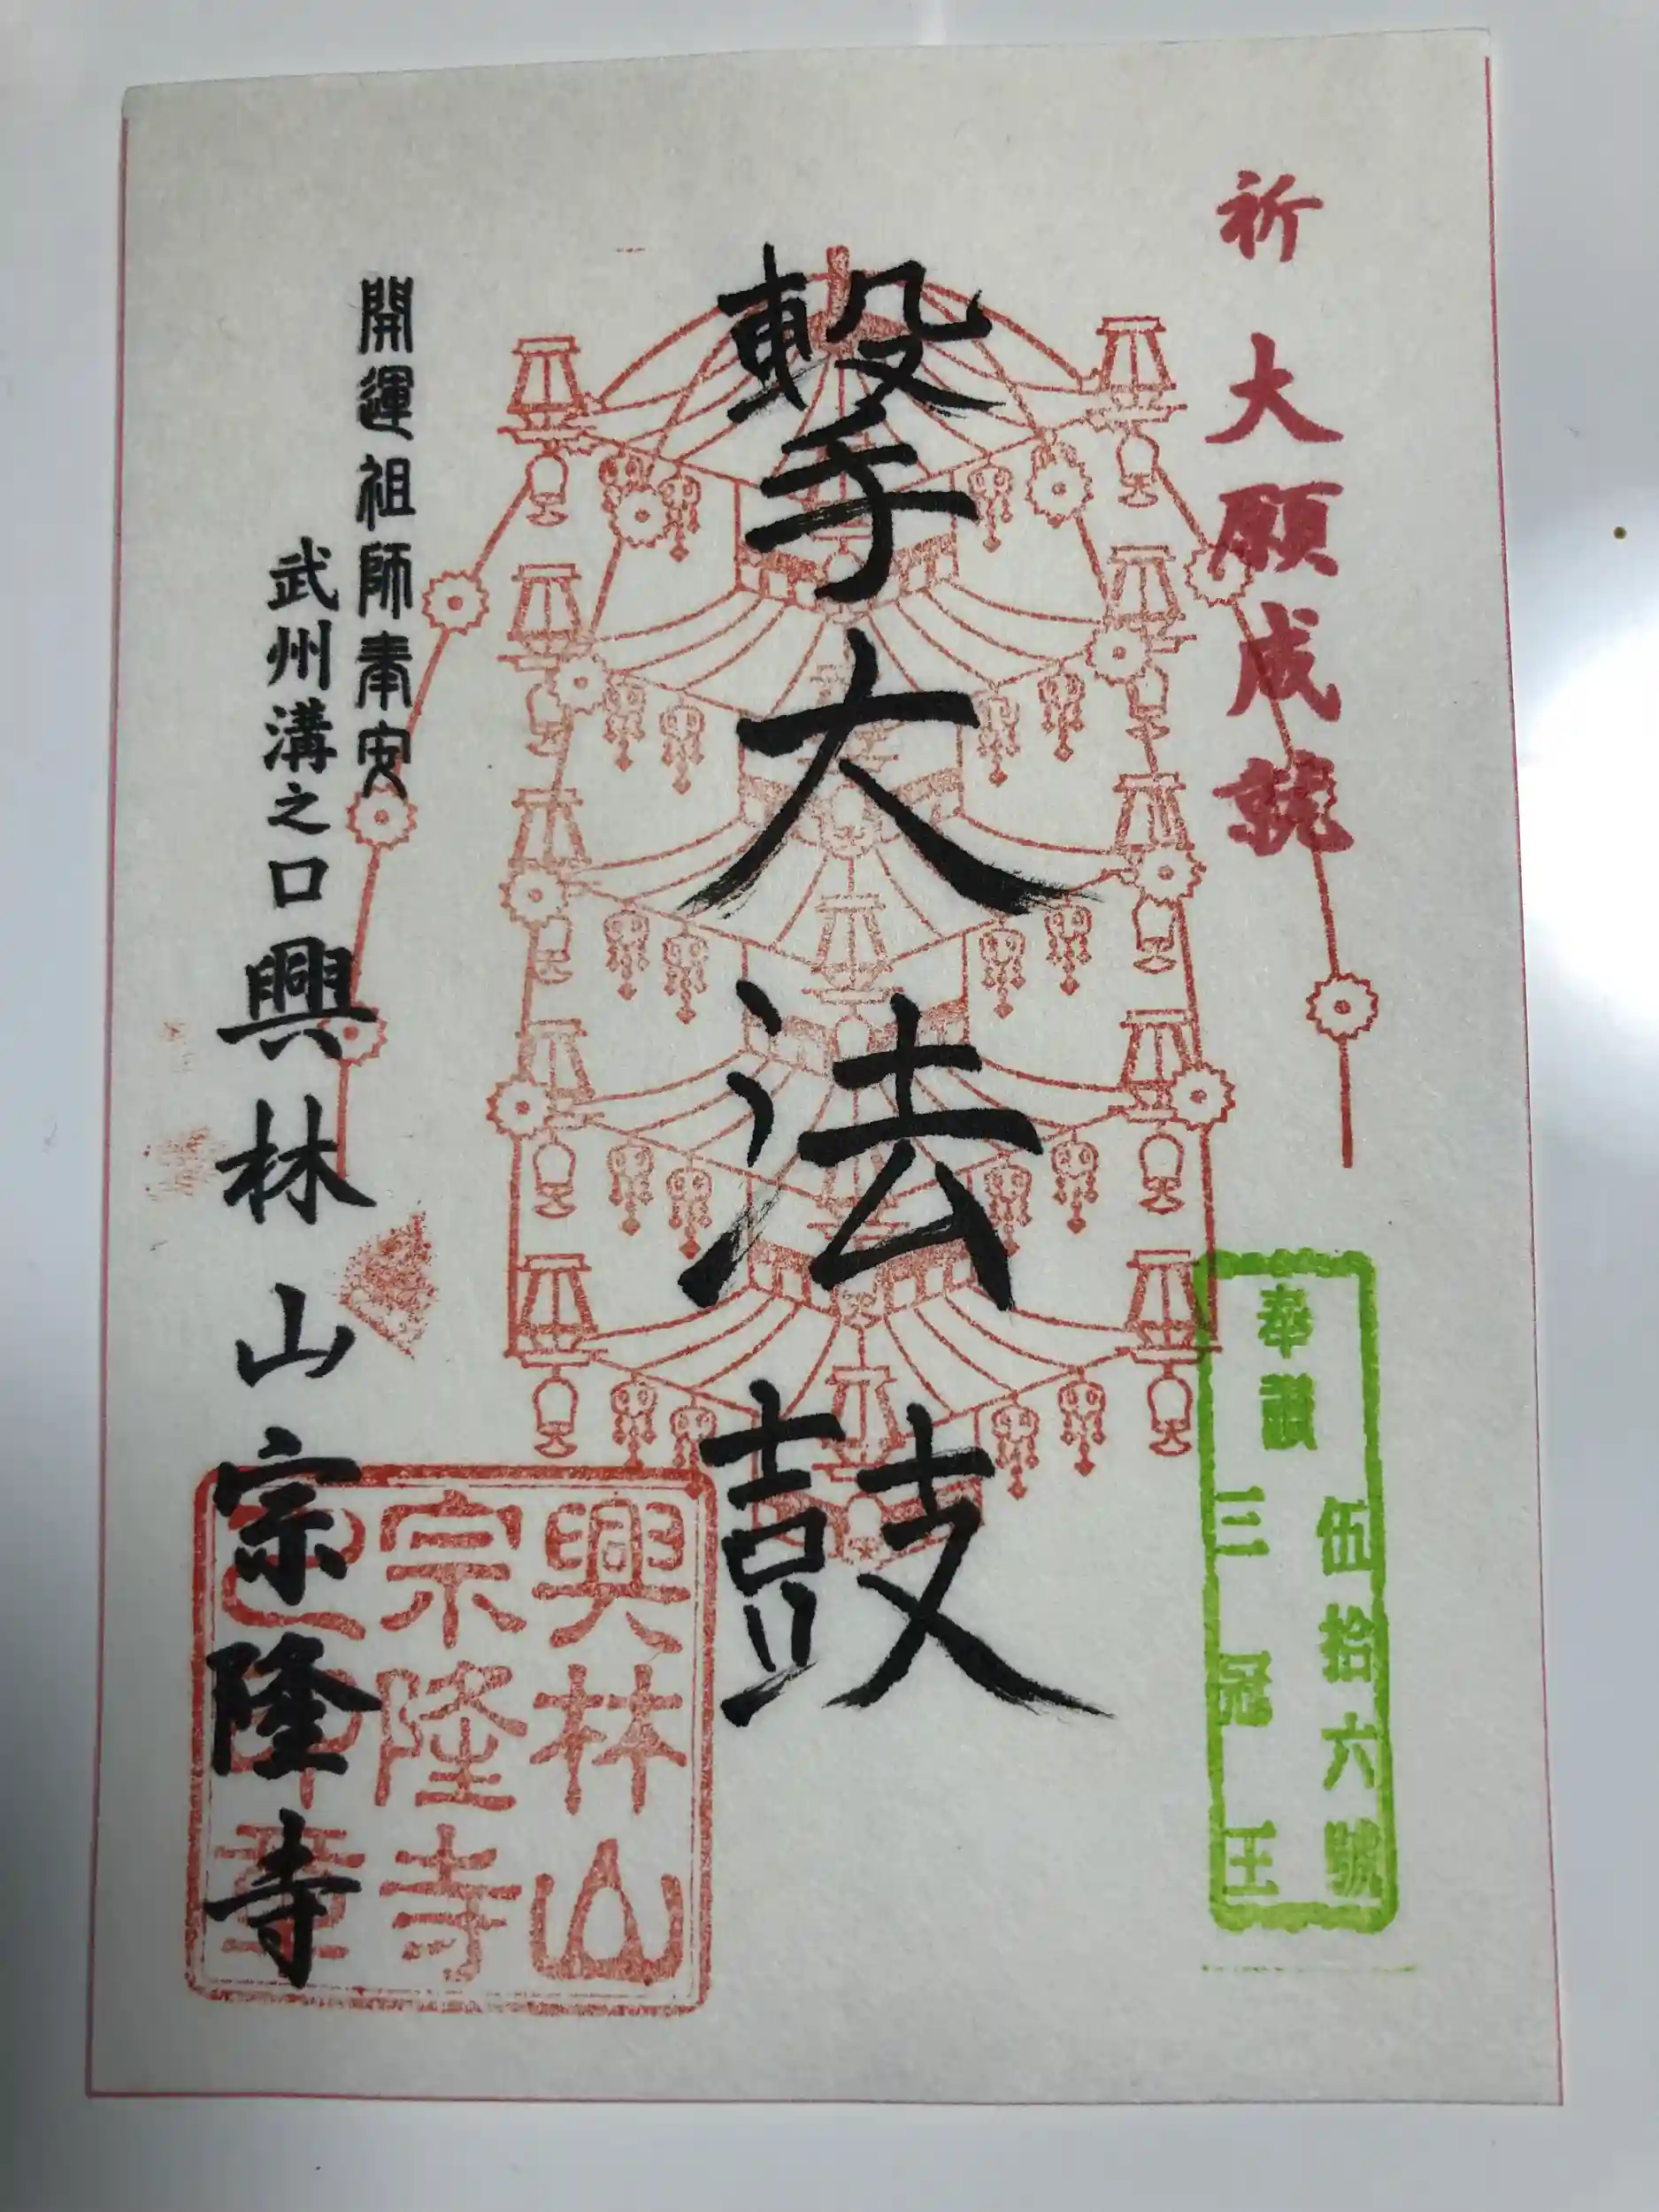 祈 大願成就
奉讃
伍拾六號
三冠王
擊大法鼓
開運祖師奉安
武州溝之口 興林山宗隆寺
興林山
宗隆寺